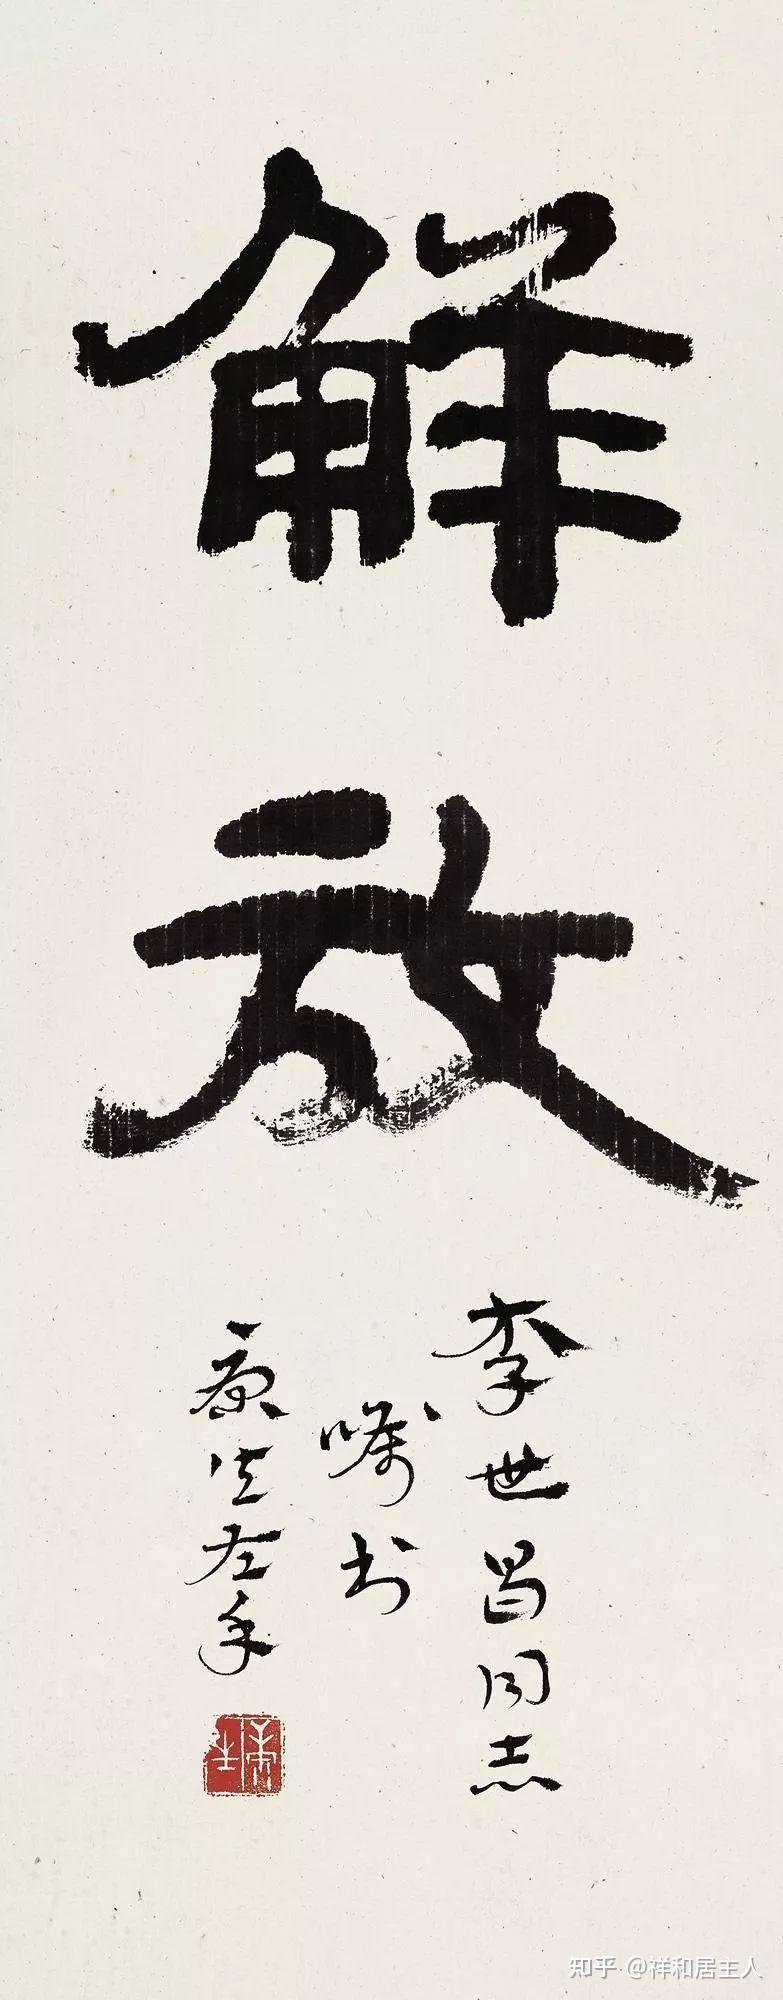 解放
李世昌同志
嘱书
康生左手
康生
知乎 @祥和居主人